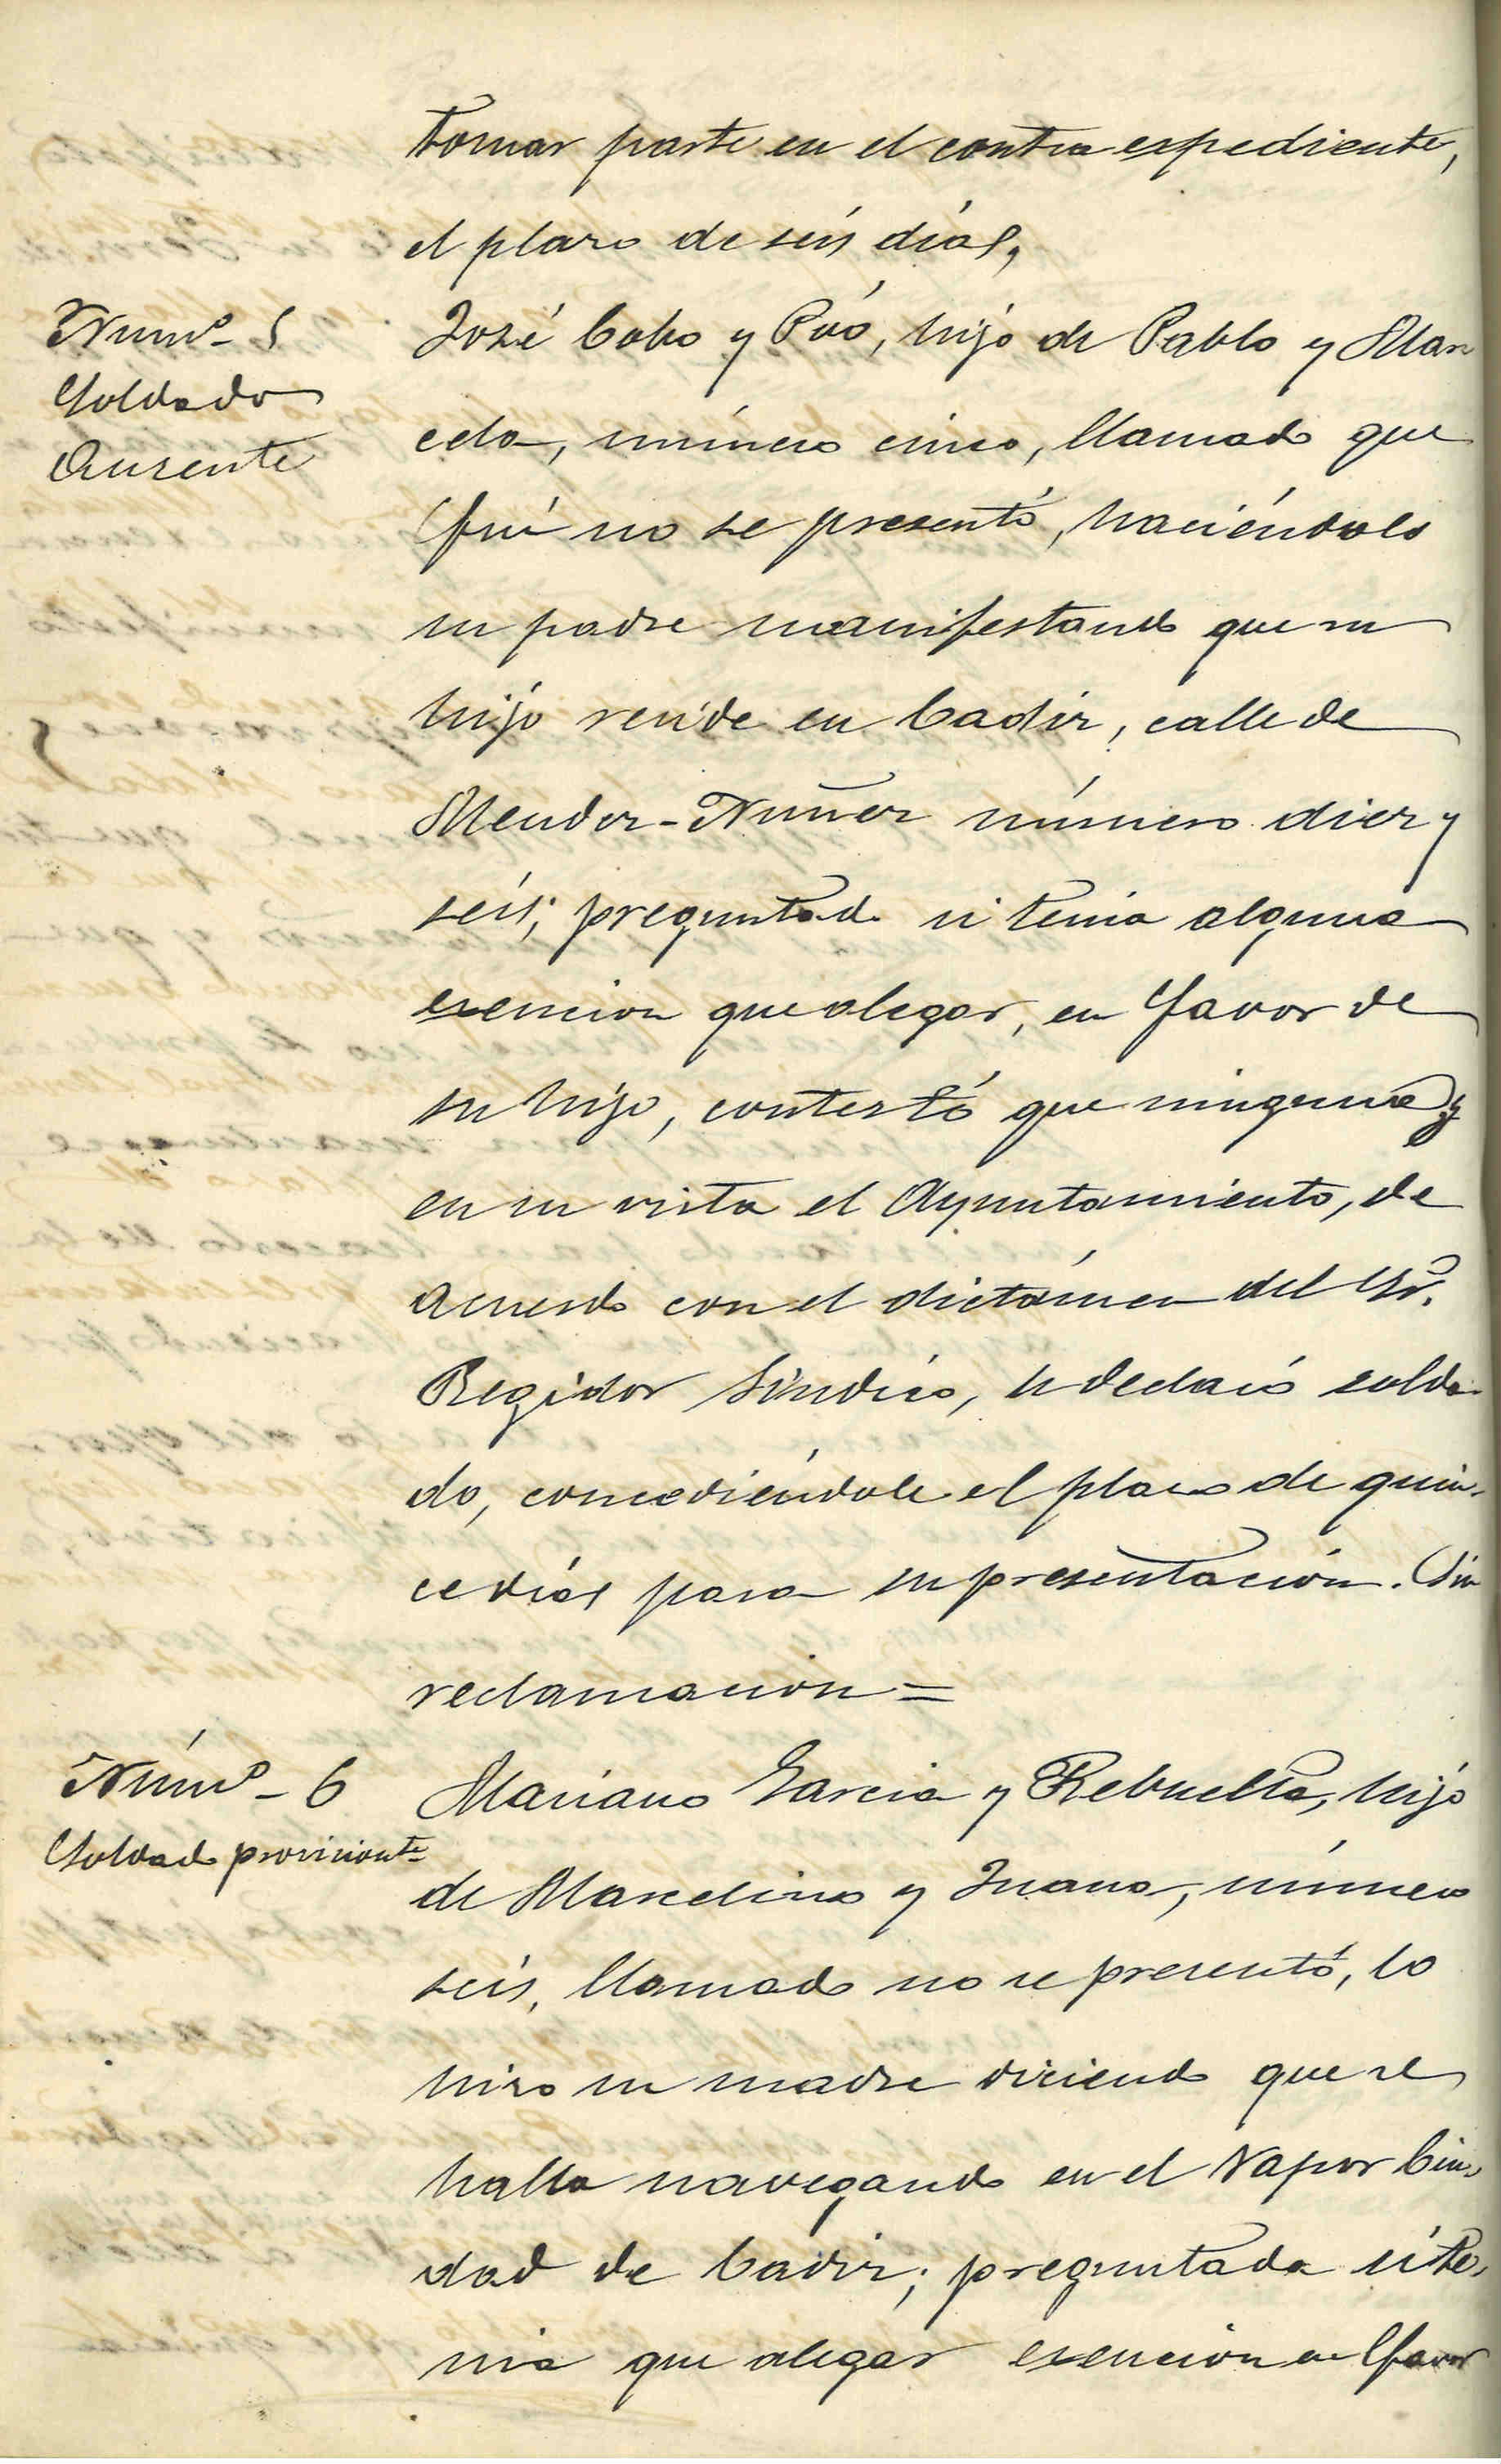 tomar parte en el contra espediente,
el plazo de seis días,
Numº - 5
Soldado
Ausente
José Cobo y Poó, hijo de Pablo y Mar
cela, número cinco, llamado que
fué no se presentó, haciéndolo
su padre manifestando que su
hijo reside en Cadiz, calle de
Mendez-Nuñez número diez y
seis; preguntado si tenia alguna
esencion que alegar, en favor de
su hijo, contestó que ninguna y
en su vista el Ayuntamiento, de
acuerdo con el dictámen del Sr.
Regidor Síndico, le declaró solda-
do, concediéndole el plazo de quin-
ce días para su presentación. Sin
reclamacion =
Númº - 6
Soldado provisionte
Mariano Garcia y Rebuelta, hijo
de Marcelino y Juana, número
seis, llamado no se presentó, lo
hizo su madre diciendo que se
halla navegando en el Vapor Ciu-
dad de Cadiz; preguntada si te-
nia que alegar esencion en favor